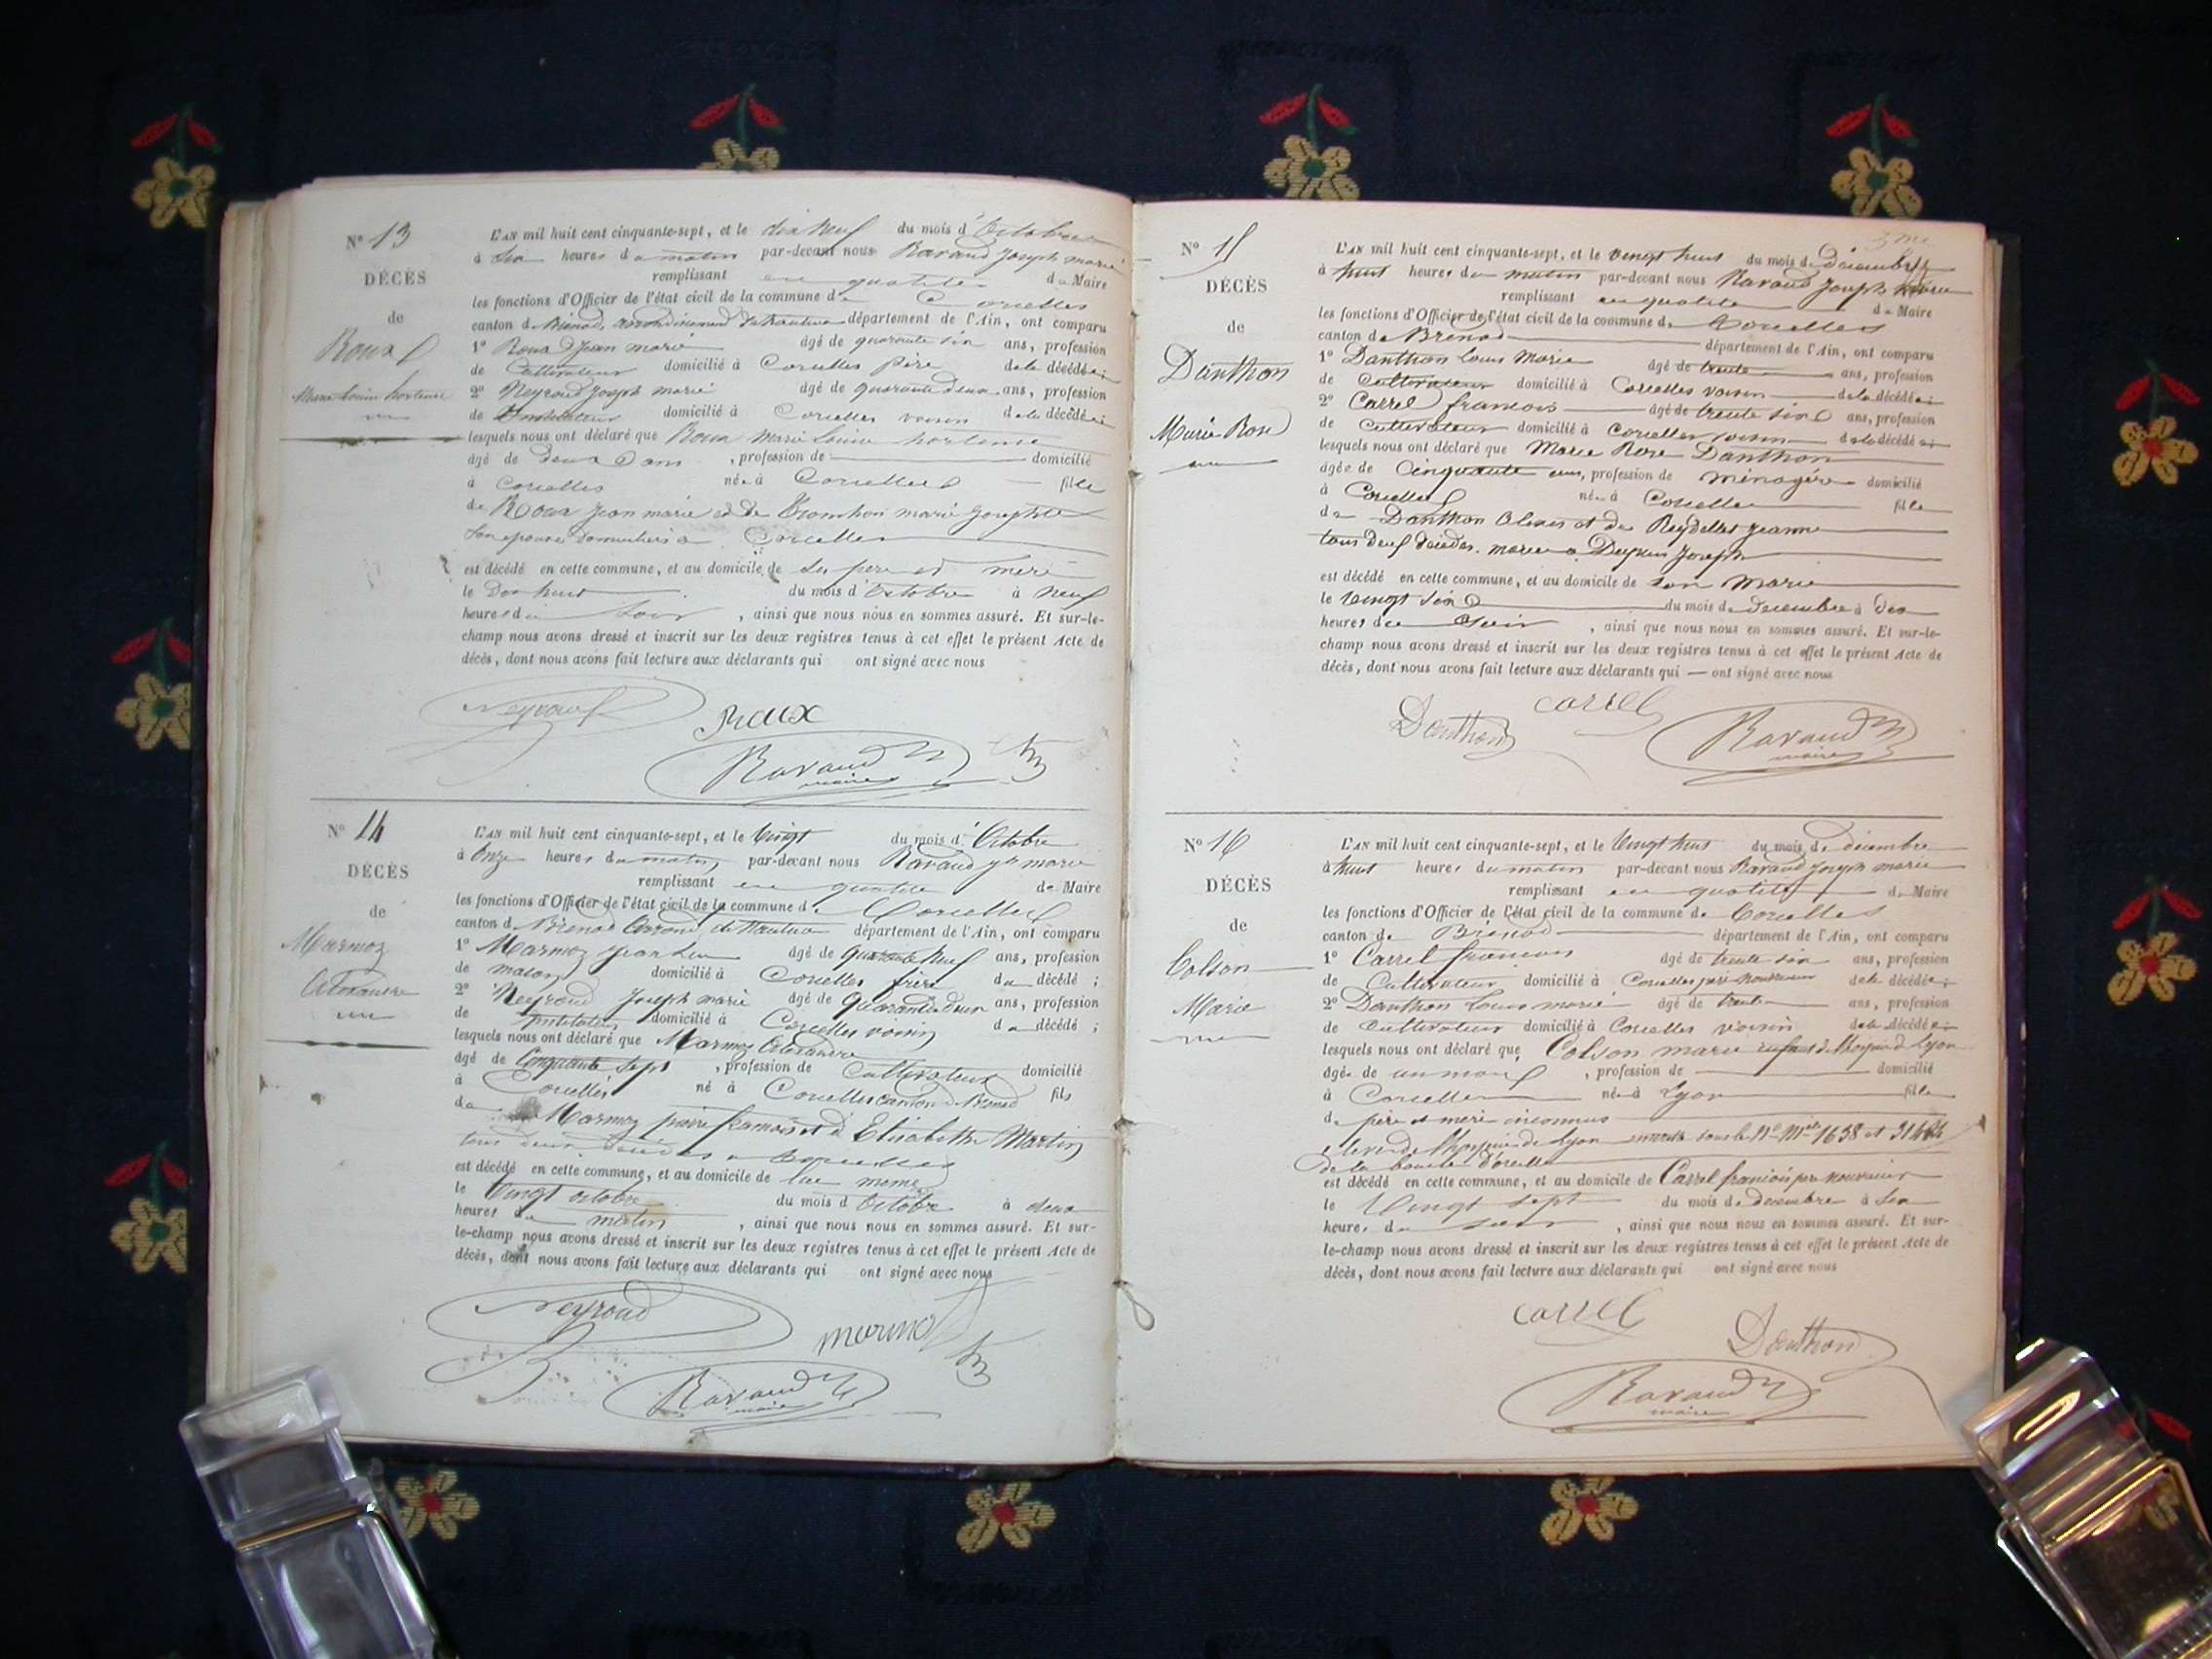 N° 13
DÉCÈS
de
Roux
Marie Louise hortense
L'AN mil huit cent cinquante-sept, et le dix neuf du mois d'Octobre
à six heures du matin par-devant nous Ravaud Joseph marie
remplissant en qualité de Maire
les fonctions d'Officier de l'état civil de la commune de Corcelles
canton de Brénod, arrondissement de Nantua département de l'Ain, ont comparu
1° Roux Jean marie âgé de quarante six ans, profession
de Cultivateur domicilié à Corcelles père de la décédée;
2° Neyroud Joseph marie âgé de quarante deux ans, profession
de Instituteur domicilié à Corcelles voisin de la décédée;
lesquels nous ont déclaré que Roux marie Louise hortense
âgé de deux ans, profession de domicilié
à Corcelles née à Corcelles fille
de Roux Jean marie et de marie Josephte
son épouse domiciliés à Corcelles
est décédé en cette commune, et au domicile de ses père et mère
le Dix huit du mois d'Octobre à neuf
heures du soir, ainsi que nous nous en sommes assuré. Et sur-le-
champ nous avons dressé et inscrit sur les deux registres tenus à cet effet le présent Acte de
décès, dont nous avons fait lecture aux déclarants qui ont signé avec nous
Neyroud Roux
Ravaud
maire
N° 14
DÉCÈS
de
Marmoz
Alexandre
L'AN mil huit cent cinquante-sept, et le vingt du mois d'Octobre
à Onze heures du matin par-devant nous Ravaud Jph marie
remplissant en qualité de Maire
les fonctions d'Officier de l'état civil de la commune de Corcelles
canton de Brénod Arrond. de Nantua département de l'Ain, ont comparu
1° Marmoz Jean âgé de quarante neuf ans, profession
de maçon domicilié à Corcelles frère du décédé;
2° Neyroud Joseph marie âgé de quarante deux ans, profession
de Instituteur domicilié à Corcelles voisin du décédé;
lesquels nous ont déclaré que Marmoz Alexandre
âgé de Cinquante sept, profession de Cultivateur domicilié
à Corcelles né à Corcelles canton de Brénod fils
de Marmoz pierre françois et d'Elisabeth Martin
tous deux décédés à Corcelles
est décédé en cette commune, et au domicile de lui même
le Vingt octobre du mois d'Octobre à deux
heures du matin, ainsi que nous nous en sommes assuré. Et sur-
le-champ nous avons dressé et inscrit sur les deux registres tenus à cet effet le présent Acte de
décès, dont nous avons fait lecture aux déclarants qui ont signé avec nous
Neyroud
Ravaud
maire
N° 15
DÉCÈS
de
Danthon
Marie Rose
L'AN mil huit cent cinquante-sept, et le vingt huit du mois de décembre
à huit heures du matin par-devant nous Ravaud Joseph marie
remplissant en qualité de Maire
les fonctions d'Officier de l'état civil de la commune de Corcelles
canton de Brénod département de l'Ain, ont comparu
1° Danthon Louis Marie âgé de trente ans, profession
de Cultivateur domicilié à Corcelles voisin de la décédée;
2° Carrel françois âgé de trente six ans, profession
de Cultivateur domicilié à Corcelles voisin de la décédée;
lesquels nous ont déclaré que Marie Rose Danthon
âgée de Cinquante ans, profession de ménagère domicilié
à Corcelles née à Corcelles fille
de Danthon Alexis et de Reydellet Jeanne
tous deux décédés. mariée à Joseph
est décédé en cette commune, et au domicile de son Marie
le vingt six du mois de décembre à dix
heures du Soir, ainsi que nous nous en sommes assuré. Et sur-le-
champ nous avons dressé et inscrit sur les deux registres tenus à cet effet le présent Acte de
décès, dont nous avons fait lecture aux déclarants qui — ont signé avec nous
Danthon Carrel
Ravaud
maire
N° 16
DÉCÈS
de
Colson
Marie
L'AN mil huit cent cinquante-sept, et le Vingt huit du mois de décembre
à huit heures du matin par-devant nous Ravaud Joseph marie
remplissant en qualité de Maire
les fonctions d'Officier de l'état civil de la commune de Corcelles
canton de Brénod département de l'Ain, ont comparu
1° Carrel françois âgé de trente six ans, profession
de Cultivateur domicilié à Corcelles père nourricier de la décédée;
2° Danthon Louis marie âgé de trente ans, profession
de Cultivateur domicilié à Corcelles voisin de la décédée;
lesquels nous ont déclaré que Colson marie enfant de l'hospice de Lyon
âgée de un mois, profession de domicilié
à Corcelles née à Lyon fille
de père et mère inconnus
élève de l'hospice de Lyon sous le N° 1638 et
de la boucle d'oreille
est décédé en cette commune, et au domicile de Carrel françois père nourricier
le Vingt sept du mois de décembre à six
heures du soir, ainsi que nous nous en sommes assuré. Et sur-
le-champ nous avons dressé et inscrit sur les deux registres tenus à cet effet le présent Acte de
décès, dont nous avons fait lecture aux déclarants qui ont signé avec nous
Carrel
Danthon
Ravaud
maire